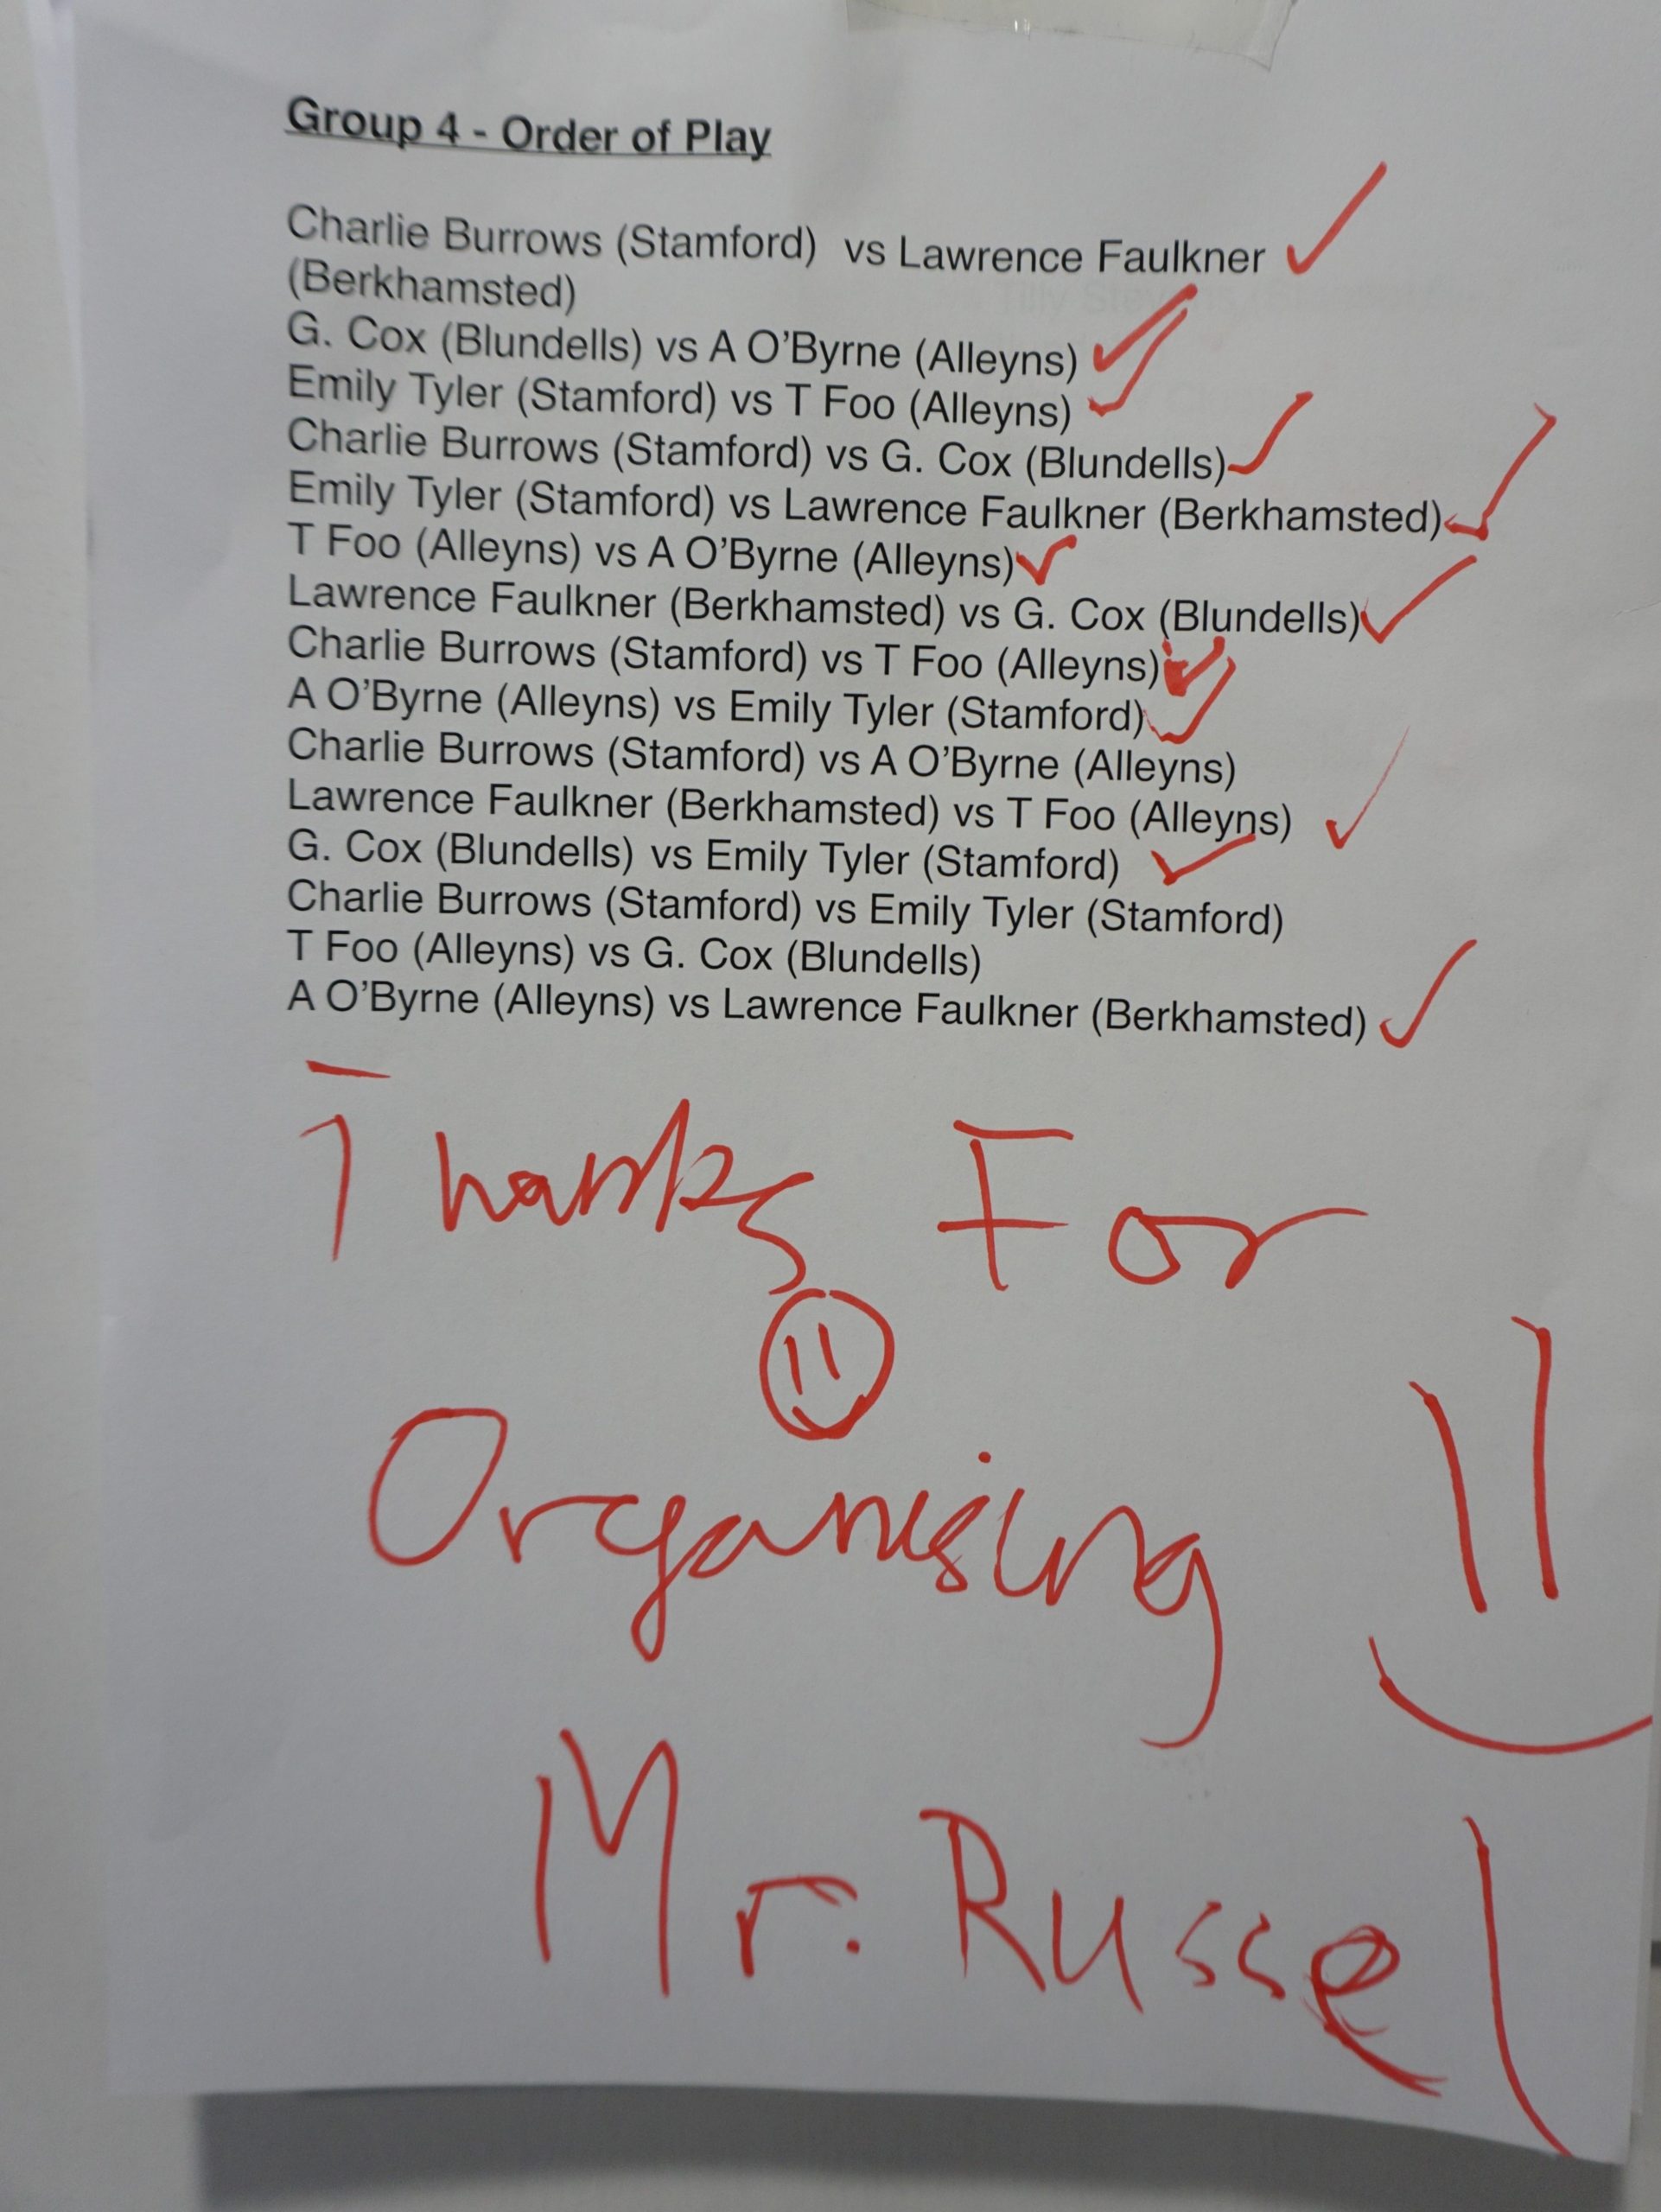 Group 4 - Order of Play
Charlie Burrows (Stamford) vs Lawrence Faulkner
(Berkhamsted)
G. Cox (Blundells) vs A O'Byrne (Alleyns)
Emily Tyler (Stamford) vs T Foo (Alleyns)
Charlie Burrows (Stamford) vs G. Cox (Blundells)
Emily Tyler (Stamford) vs Lawrence Faulkner (Berkhamsted)
T Foo (Alleyns) vs A O'Byrne (Alleyns)
Lawrence Faulkner (Berkhamsted) vs G. Cox (Blundells)
Charlie Burrows (Stamford) vs T Foo (Alleyns)
A O'Byrne (Alleyns) vs Emily Tyler (Stamford)
Charlie Burrows (Stamford) vs A O'Byrne (Alleyns)
Lawrence Faulkner (Berkhamsted) vs T Foo (Alleyns)
G. Cox (Blundells) vs Emily Tyler (Stamford)
Charlie Burrows (Stamford) vs Emily Tyler (Stamford)
T Foo (Alleyns) vs G. Cox (Blundells)
A O'Byrne (Alleyns) vs Lawrence Faulkner (Berkhamsted)
Thanks For
Organising
Mr. Russel